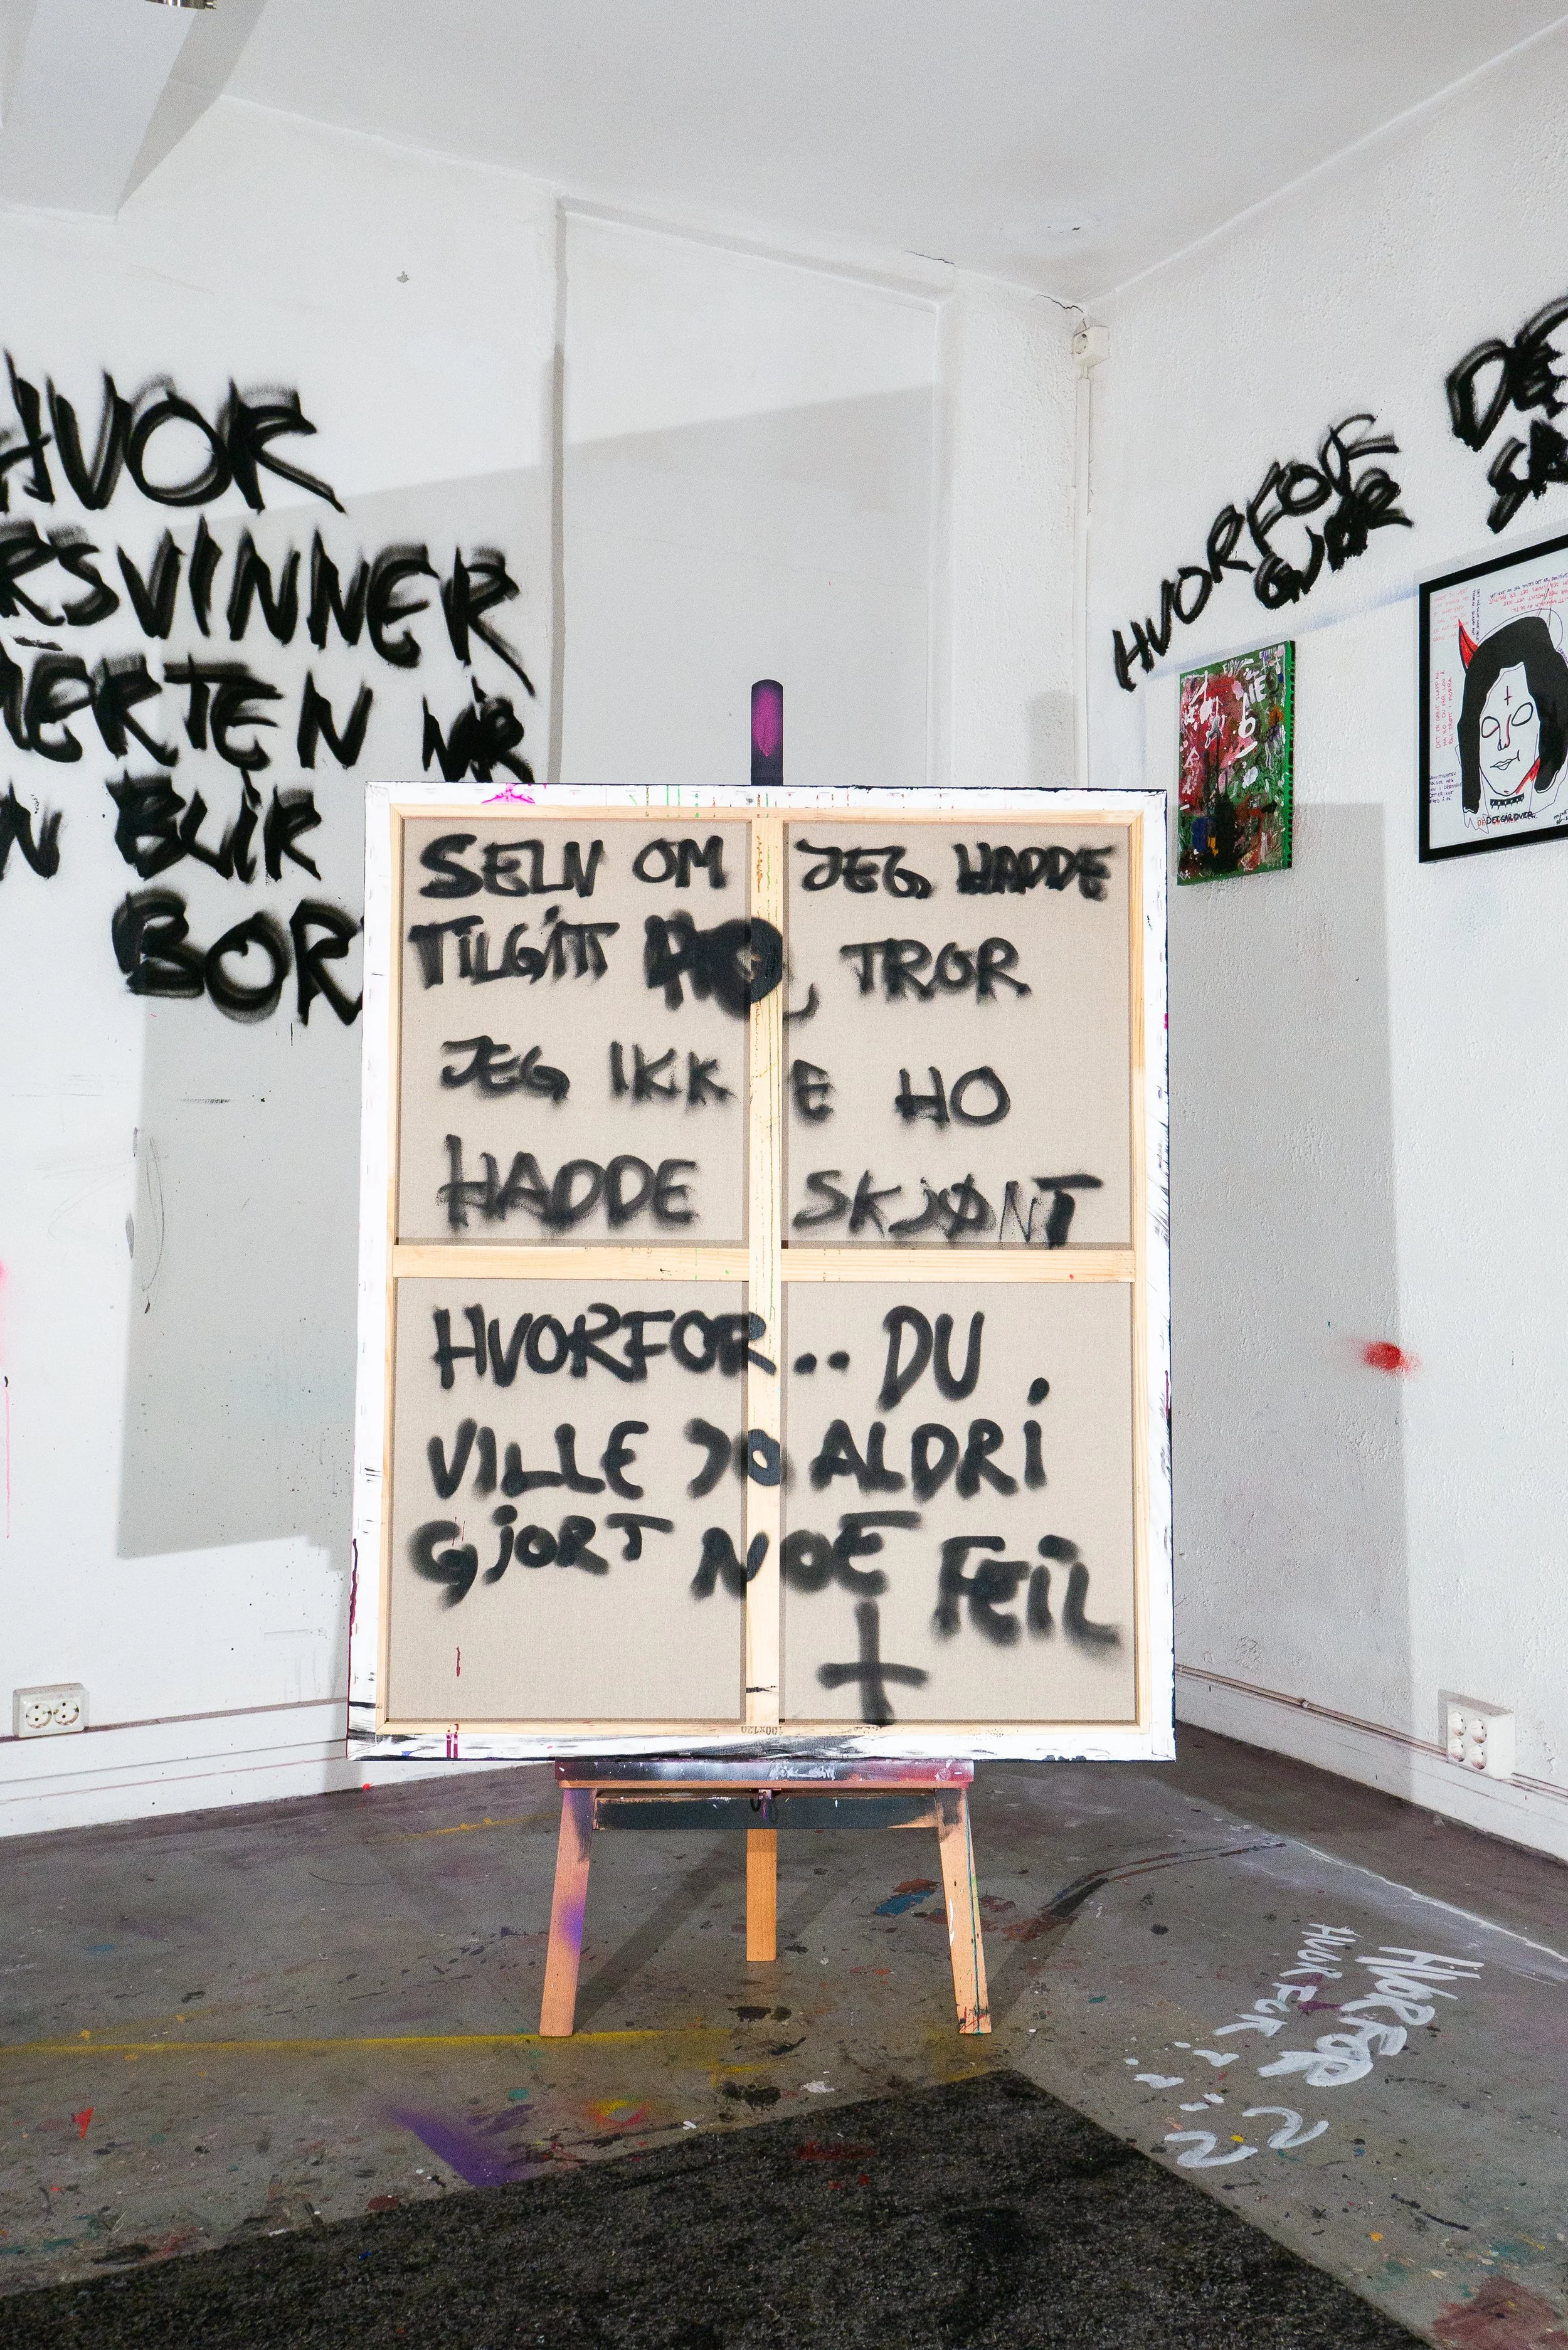 HVOR
RSVINNER
ERTEN NÅR
N BLIR
BOR
HVORFOR
GJØR
DE
SELV OM JEG HADDE
TILGITT HO, TROR
JEG IKKE HO
HADDE SKJØNT
HVORFOR.. DU
VILLE JO ALDRI
GJORT NOE FEIL
HVORFOR
HVORFOR